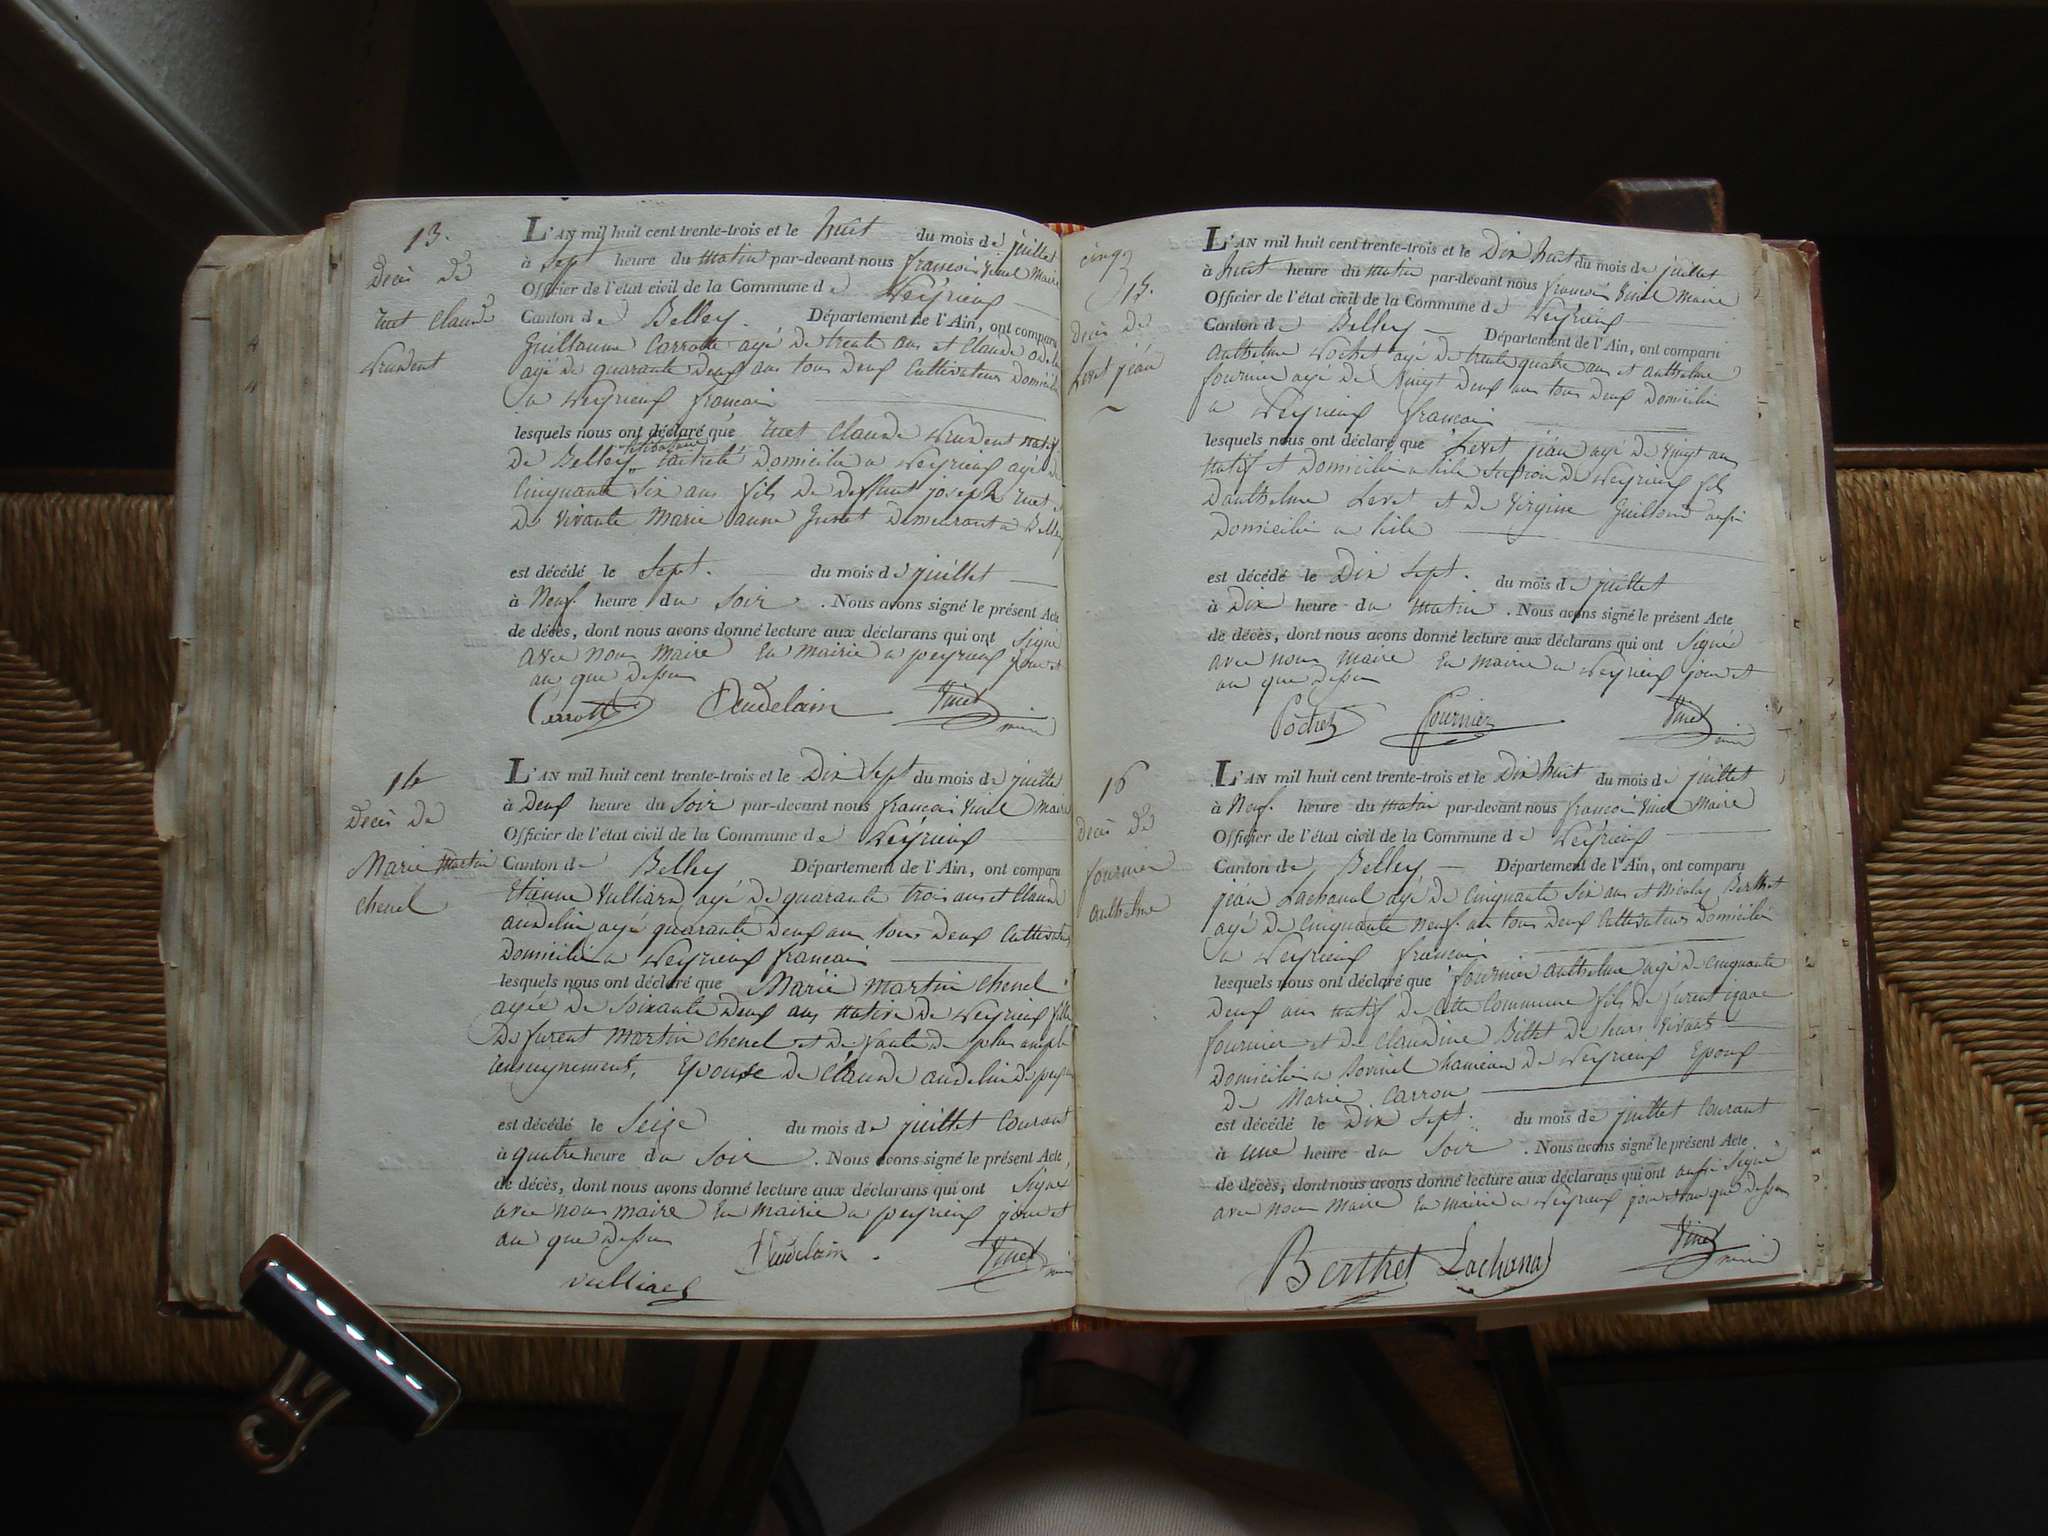 13.
Deces de
ruet Claude
prudent
L'AN mil huit cent trente-trois et le huit du mois de juillet
à Sept heure du matin par-devant nous francois vinet Maire
Officier de l'état civil de la Commune de peyrieux
Canton de Belley. Département de l'Ain, ont comparu
Guillaume Carrotte agé de trente ans et Claude
agé de quarante deux ans tous deux Cultivateurs Domicilié
a peyrieux francais
lesquels nous ont déclaré que ruet Claude prudent natif
de Belley Domicilié a peyrieux agé de
Cinquante Six ans fils de deffunt joseph ruet et
de vivante Marie anne demeurant a Belley
est décédé le Sept. du mois de juillet
à Neuf. heure du Soir. Nous avons signé le présent Acte
de décès, dont nous avons donné lecture aux déclarans qui ont Signé
avec nous Maire En Mairie a peyrieux jour et
an que Dessus
Carrotte Daudelain Vinet
mair
14
Deces de
Marie Martin
Chenel
L'AN mil huit cent trente-trois et le Dix Sept du mois de juillet
à Deux heure du Soir par-devant nous francois vinet Maire
Officier de l'état civil de la Commune de peyrieux
Canton de Belley Département de l'Ain, ont comparu
Etienne Vulliard agé de quarante trois ans et Claude
audelin agé quarante Deux ans tous Deux Cultivateurs
Domicilié a peyrieux francais
lesquels nous ont déclaré que Marie Martin Chenel
agée de Soixante Deux ans native de peyrieux fille
De furent Martin Chenel et de faute de plus ample
renseignement, Epouse de Claude audelin de
est décédé le Seize du mois de juillet Courant
à quatre heure du Soir. Nous avons signé le présent Acte
de décès, dont nous avons donné lecture aux déclarans qui ont Signé
avec nous maire En Mairie a peyrieux jour et
an que Dessus
Daudelain. Vinet
vulliard
15.
Deces de
Levet jéan
L'AN mil huit cent trente-trois et le Dix huit du mois de juillet
à huit heure du matin par-devant nous francois vinet Maire
Officier de l'état civil de la Commune de peyrieux
Canton de Belley Département de l'Ain, ont comparu
Anthelme pochet agé de trente quatre ans et anthelme
fournier agé de Vingt Deux ans tous Deux Domicilié
a peyrieux francais
lesquels nous ont déclaré que Levet jéan agé de vingt ans
natif et Domicilié a de peyrieux fils
D'anthelme Levet et de Virginie aussi
Domicilié a
est décédé le Dix Sept. du mois de juillet
à Dix heure du Matin. Nous avons signé le présent Acte
de décès, dont nous avons donné lecture aux déclarans qui ont Signé
avec nous Maire En Mairie a peyrieux jour et
an que Dessus
Pochet fournier Vinet
mair
16
Deces de
fournier
anthelme
L'AN mil huit cent trente-trois et le Dix huit du mois de juillet
à Neuf. heure du matin par-devant nous francois vinet Maire
Officier de l'état civil de la Commune de peyrieux
Canton de Belley Département de l'Ain, ont comparu
jéan Lachanal agé de Cinquante Six ans et Nicolas Berthet
agé de Cinquante Neuf. ans tous Deux Cultivateurs Domicilié
a peyrieux francais
lesquels nous ont déclaré que fournier anthelme agé de Cinquante
Deux ans natif de Cette Commune fils de furent
fournier et de Claudine Billet de leurs vivants
Domicilié a hameau de peyrieux Epoux
de Marie Carron
est décédé le Dix Sept. du mois de juillet Courant
à une heure du Soir. Nous avons signé le présent Acte
de décès, dont nous avons donné lecture aux déclarans qui ont aussi Signé
avec nous Maire En Mairie a peyrieux jour et an que Dessus
Berthet Lachanal Vinet
mair